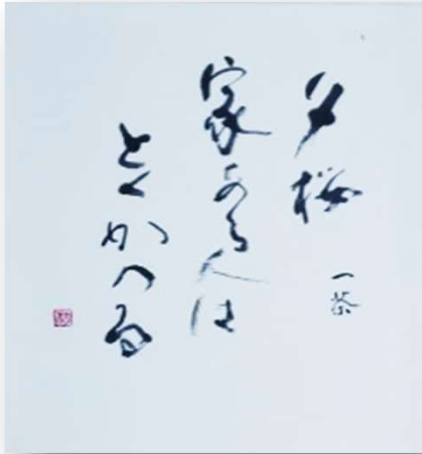 夕桜
家ある人は
とくかへる
一茶